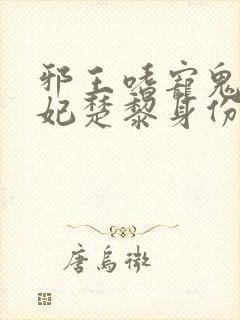 邪王嗜宠鬼
妃楚黎身份
唐乌微